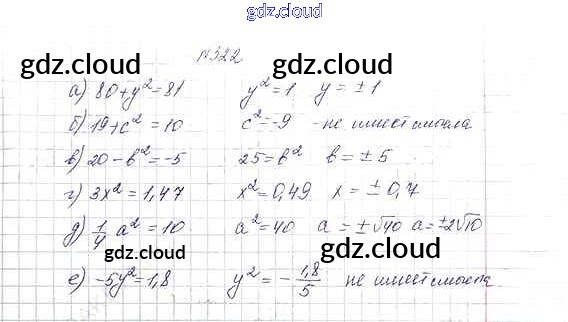 gdz.cloud
№322
gdz.cloud gdz.cloud
а) 80+y²=81 y²=1 y=±1
б) 19+c²=10 c²=-9 - не имеет смысла
в) 20-b²=-5 25=b² b=±5
г) 3x²=1,47 x²=0,49 x=±0,7
д) 1/4 a²=10 a²=40 a=±√40 a=±2√10
gdz.cloud gdz.cloud
е) -5y²=1,8 y²=-1,8/5 не имеет смысла